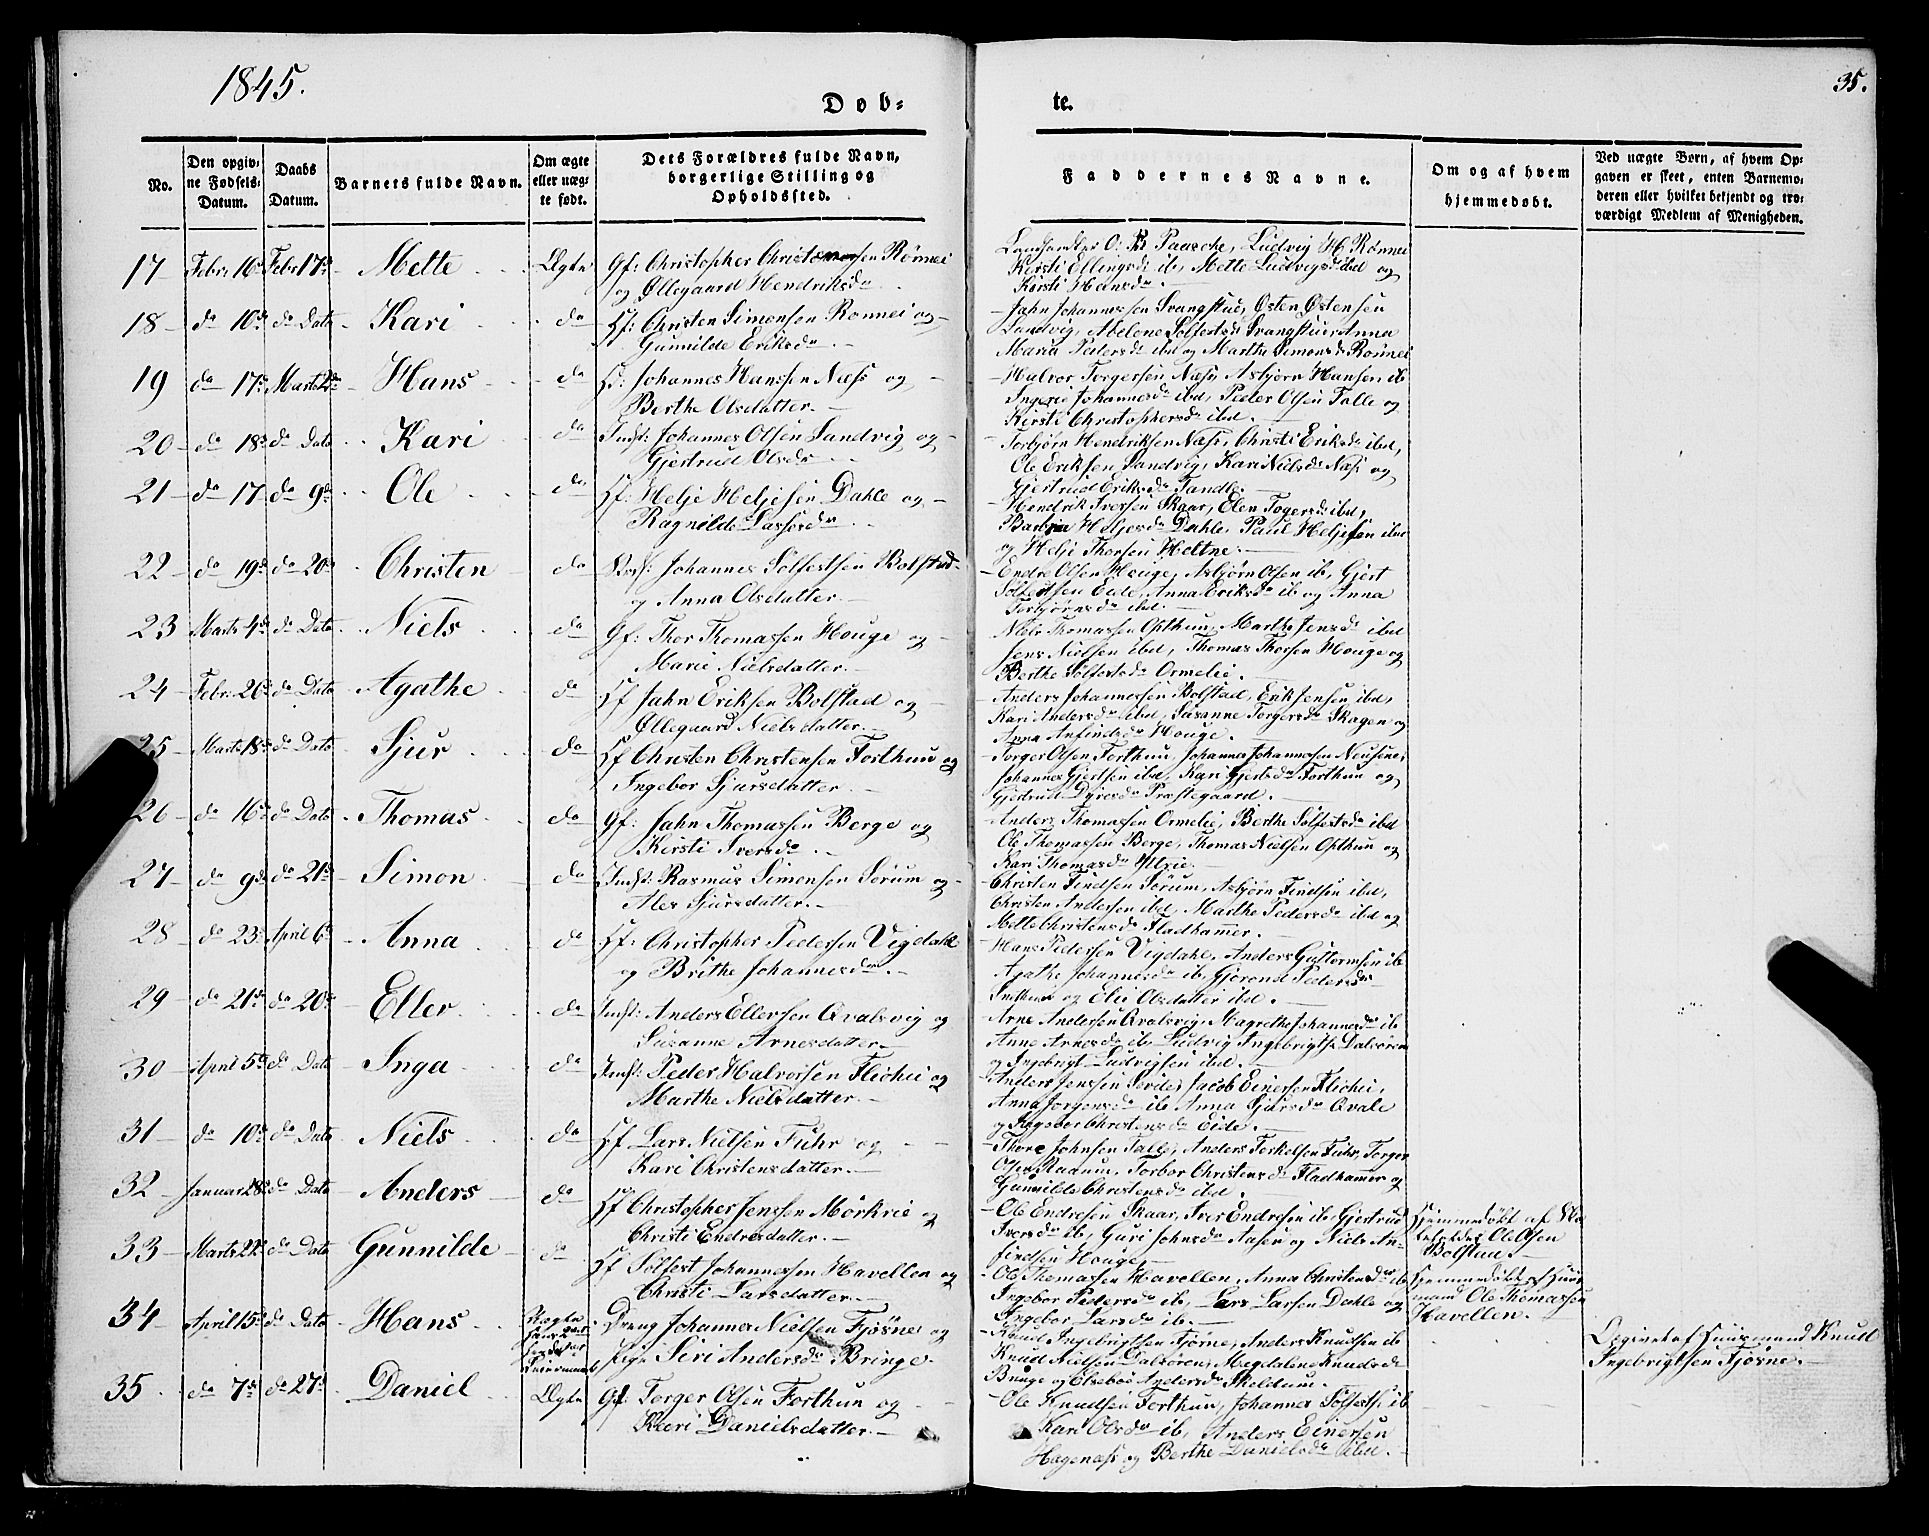 1845.
35.
Døb-
te.
No.
Den opgiv-
ne Fødsels-
Datum.
Daabs
Datum.
Barnets fulde Navn.
Om ægte
eller uæg-
te født.
Dets Forældres fulde Navn,
borgerlige Stilling og
Opholdssted.
Faddernes Navne.
Om og af hvem
hjemmedøbt.
Ved uægte Børn, af hvem Op-
gaven er skeet, enten Barnemo-
deren eller hvilket bekjendt og tro-
værdigt Medlem af Menigheden.
17 Febr: 16de Febr 17de Mette Ægte Gf: Christopher Christensen Rønnei
og Øllegaard Hendriksdr
O: B Paasche, Ludvig H. Rønnei
Kirsti Ellingsdr ib, Mette Ludvigsdr ibd og
Kirsti Hansdr.
18 do 10de do Dato Kari do Hf: Christen Simonsen Rønnei og
Gunnilde Eriksdr.
Jahn Johannessen Svangstue, Østen Østensen
Sandvig, Abelone Solfestsdr Svangstue, Anna
Maria Pedersdr ibd og Marthe Simonsdr Rønnei
19 do 17de Marts 2de Hans do Hf: Johannes Hanssen Næss og
Berthe Olsdatter.
Halvor Torgersen Næss, Asbjørn Hansen ib
Ingerie Johannesdr ibd, Peder Olsen Talle og
Kirsti Christophersdr ibd.
20 do 18de do Dato Kari do Indst: Johannes Olsen Sandvig og
Gjertrud Olsdr
Torbjørn Hendriksen Næss, Christi Eriksdr ibd,
Ole Eriksen Sandvig, Kari Nielsdr Næss og
Gjertrud Eriksdr Tandle.
21 do 17 do 9de Ole do Hf: Helje Heljesen Dahle og
Ragnilde Lassesdr
Hendrik Iversen Skaar, Elen Togersdr ibd,
Heljesdr Dahle, Paul Heljesen ibd
og Helje Thorsen Heltne.
22 do 19de do 20de Christen do Johannes Solfestsen Bolstad
og Anna Olsdatter.
Endre Olsen Houge, Asbjørn Olsen ib, Gjert
Solfestsen Eide, Anna Eriksdr ib og Anna
Torbjørnsdr ibd.
23 Marts 4de do Dato Niels do Gf: Thor Thomassen Houge og
Marie Nielsdatter.
Niels Thomassen Opthun, Marthe Jensdr ibd
Jens Nielsen ibd, Thomas Thorsen Houge og
Berthe Solfestsdr Ormelie.
24 Febr: 26de do Dato Agathe do Hf Jahn Eriksen Bolstad og
Øllegaard Nielsdatter.
Anders Johannessen Bolstad, Erik Jensen ibd,
Kari Andersdr ibd, Susanne Torgersdr Skagen og
Anna Anfindsdr Houge.
25 Marts 18de do Dato Sjur do Hf Christen Christensen Forthun og
Ingebor Sjursdatter.
Torger Olsen Forthun, Johannes Johannessen
Johannes Gjertsen ibd, Kari Gjertsdr Forthun og
Gjertrud Dyresdr Præstegaard.
26 do 16de do Dato Thomas do Gf: Jahn Thomassen Berge og
Kirsti Iversdr.
Anders Thomassen Ormelie, Berthe Solfestsdr ibd
Ole Thomassen Berge, Thomas Nielsen Opthun og
Kari Thomasdr Yttrie.
27 do 9de do 21de Simon do Indst: Rasmus Simonsen Sorum og
Ales Sjursdatter.
Christen Findsen Sorum, Asbjørn Findsen ibd,
Christen Andersen ibd, Marthe Pedersdr ibd og
Mette Christensdr Fladhamer.
28 do 23de April 6te Anna do Hf: Christopher Pedersen Vigdahl
og Brithe Johannesdr.
Hans Pedersen Vigdahl, Anders Guttormsen ib
Agathe Johannesdr ib, Gjørond Pedersdr
og Elie Olsdatter ibd.
29 do 21de do 20de Eller do Indst: Anders Ellersen Qvalsvig og
Susanne Arnesdatter.
Arne Andersen Qvalsvig, Magrethe Johannesdr ib
Anne Arnesdr ib, Ludvig Ingebrigts: Dalsøren
og Ingebrigt Ludvigsen ibd.
30 April 5te do Dato Inga do Indst: Peder Halvorsen Flickii og
Marthe Nielsdatter.
Anders Jenssen Jacob Einersen Flichii,
Anna Jørgensdr ib, Anna Sjursdr Qvale
og Ingebor Christensdr Eide.
31 do 10de do Dato Niels do Hf Lars Nielsen Fuhr og
Kari Christensdatter.
Thore Johnsen Talle, Anders Torkelsen Fuhr, Torger
Olsen Torbor Christensdr Fladhammer og
Gunnilde Christensdr ibd.
32 Januar 28de do Dato Anders do Hf Christopher Jenssen Mørkrie og
Christi Endresdatter.
Ole Endresen Skaar, Iver Endresen ib, Gjertrud
Iversdr ib, Guri Johnsdr Aasen og Niels An-
findsen Houge.
Hjemmedøbt af
Ole Olsen
Bolstad.
33 Marts 22de do Dato Gunnilde do Hf Solfest Johannessen Havellen og
Christi Larsdatter.
Ole Thomassen Havellen, Anna Christensdr ib
Ingebor Pedersdr ib, Lars Larsen Dahle og
Ingebor Larsdr ib.
Hjemmedøbt af Huus-
mand Ole Thomassen
Havellen.
34 April 15de do Dato Hans Uægte
Leiermaal
Dreng Johannes Nielsen Fjøsne og
Pige Siri Andersdr Bringe.
Knud Ingebrigtsen Fjøsne, Anders Knudsen ib
Knud Nielsen Dalsøren, Magdalene Knudsdr
Bringe og Elsebøe Andersdr Skeldum.
Opgivet af Huusmand Knud
Ingebrigtsen Fjøsne.
35 do 7de do 27de Daniel Ægte Gf: Torger Olsen Forthun og
Kari Danielsdatter.
Ole Knudsen Forthun, Johannes Solfests: ib
Kari Olsdr ib, Anders Einersen
Hagenæss og Berthe Danielsdr ibd.